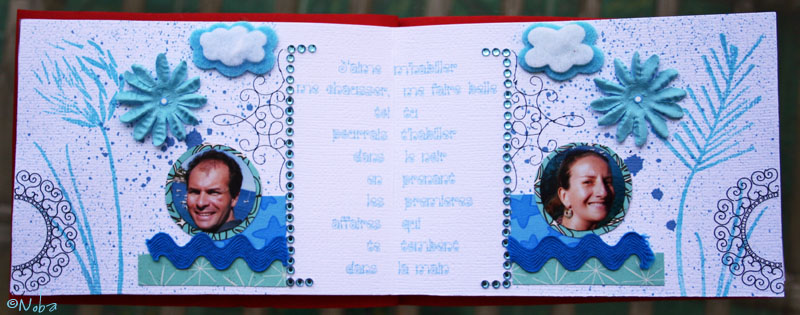 J'aime m'habiller
me chausser, me faire belle
toi tu
pourrais t'habiller
dans le noir
en prenant
les premières
affaires qui
te tombent
dans la main
©Noba